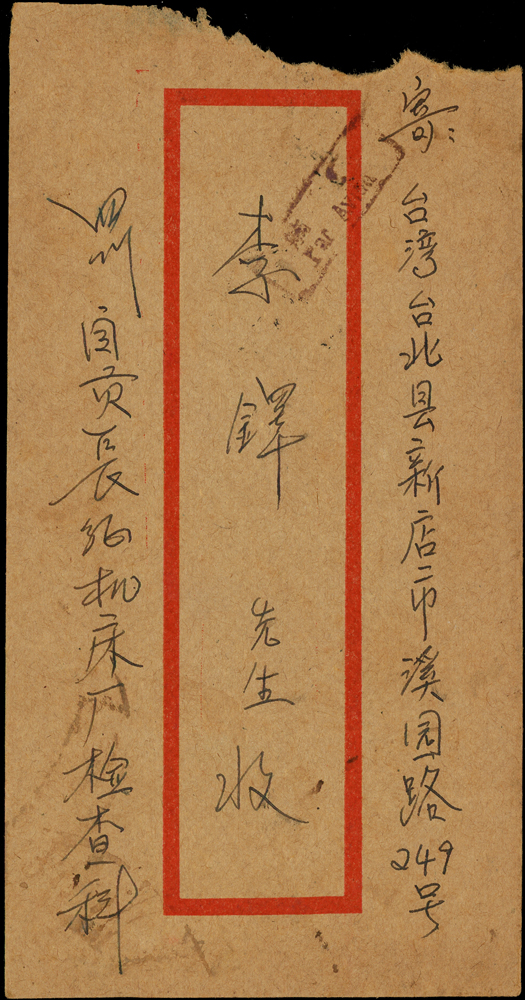 寄: 台湾台北县新店市溪园路249号
李鐸 先生 收
四川自贡长征机床厂检查科
Par Avion